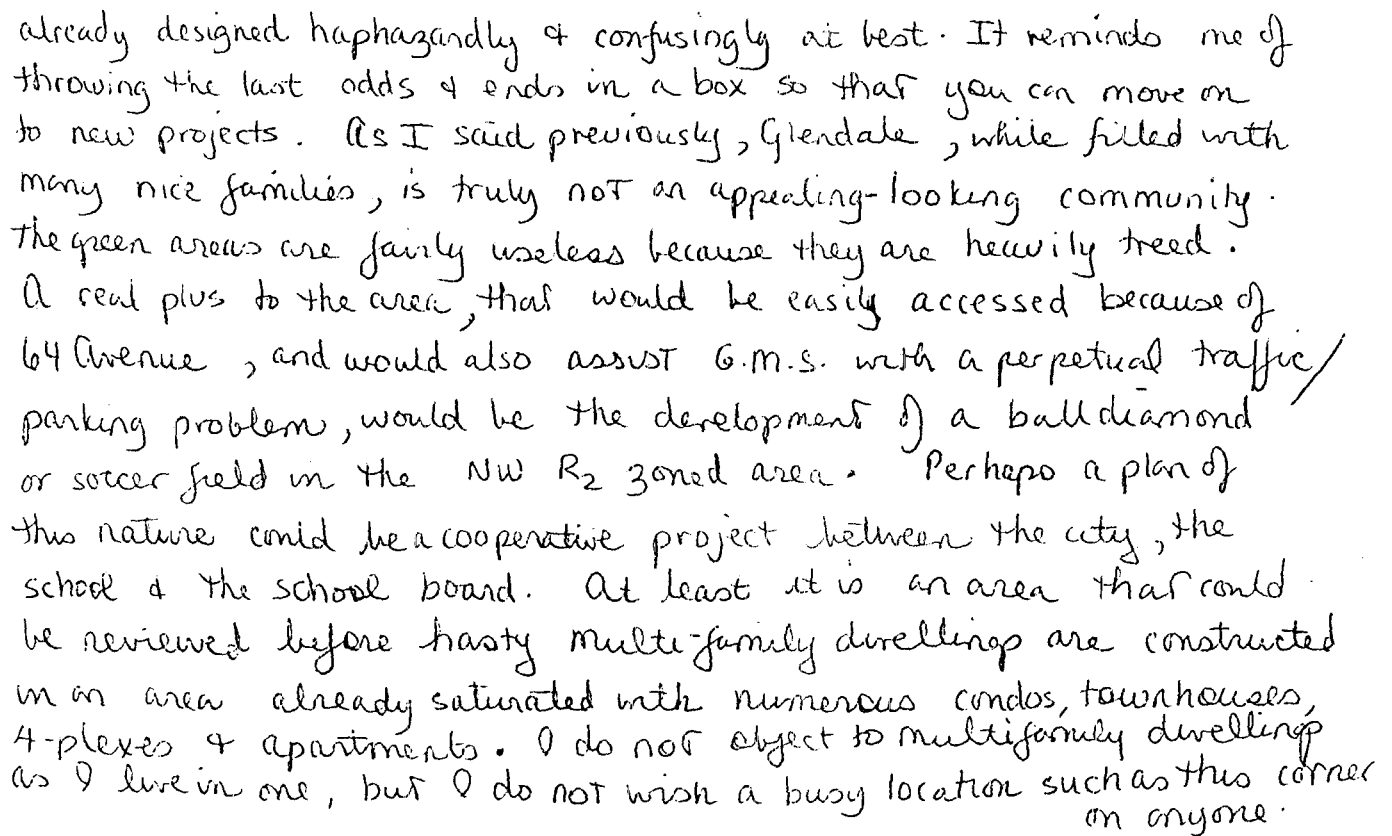 already designed haphazardly & confusingly at best. It reminds me of
throwing the last odds & ends in a box so that you can move on
to new projects. As I said previously, Glendale, while filled with
many nice families, is truly not an appealing-looking community.
The green areas are fairly useless because they are heavily treed.
A real plus to the area, that would be easily accessed because of
64 Avenue, and would also assist G.M.S. with a perpetual traffic/
parking problem, would be the development of a ball diamond
or soccer field in the NW R2 zoned area. Perhaps a plan of
this nature could be a cooperative project between the city, the
school & the school board. At least it is an area that could
be reviewed before hasty multi-family dwellings are constructed
in an area already saturated with numerous condos, townhouses,
4-plexes & apartments. I do not object to multifamily dwellings
as I live in one, but I do not wish a busy location such as this corner
on anyone.